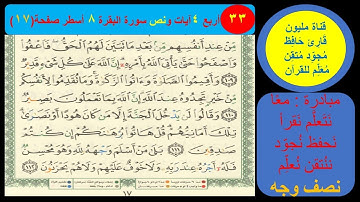 ٣٣ أربع ٤ آيات ونص سورة البقرة ٨ أسطر صفحة(١٧)
مِّنْ عِندِ أَنفُسِهِم مِّنۢ بَعْدِ مَا تَبَيَّنَ لَهُمُ ٱلْحَقُّ فَٱعْفُوا۟
وَٱصْفَحُوا۟ حَتَّىٰ يَأْتِىَ ٱللَّهُ بِأَمْرِهِۦٓ إِنَّ ٱللَّهَ عَلَىٰ كُلِّ شَىْءٍ قَدِيرٌ ١٠٩
وَأَقِيمُوا۟ ٱلصَّلَوٰةَ وَءَاتُوا۟ ٱلزَّكَوٰةَ وَمَا تُقَدِّمُوا۟ لِأَنفُسِكُم
مِّنْ خَيْرٍ تَجِدُوهُ عِندَ ٱللَّهِ إِنَّ ٱللَّهَ بِمَا تَعْمَلُونَ بَصِيرٌ ١١٠
وَقَالُوا۟ لَن يَدْخُلَ ٱلْجَنَّةَ إِلَّا مَن كَانَ هُودًا أَوْ نَصَٰرَىٰ
تِلْكَ أَمَانِيُّهُمْ قُلْ هَاتُوا۟ بُرْهَٰنَكُمْ إِن كُنتُمْ
صَٰدِقِينَ ١١١ بَلَىٰ مَنْ أَسْلَمَ وَجْهَهُۥ لِلَّهِ وَهُوَ مُحْسِنٌ
فَلَهُۥٓ أَجْرُهُۥ عِندَ رَبِّهِۦ وَلَا خَوْفٌ عَلَيْهِمْ وَلَا هُمْ يَحْزَنُونَ ١١٢
١٧
قناة مليون
قارئ حافظ
مُجوّد مُتقن
مُعلّم للقرآن
مبادرة : معًا
نتعلّم نَقرأ
نَحفظ نُجوّد
نُتقن نُعلّم
نصف وجه